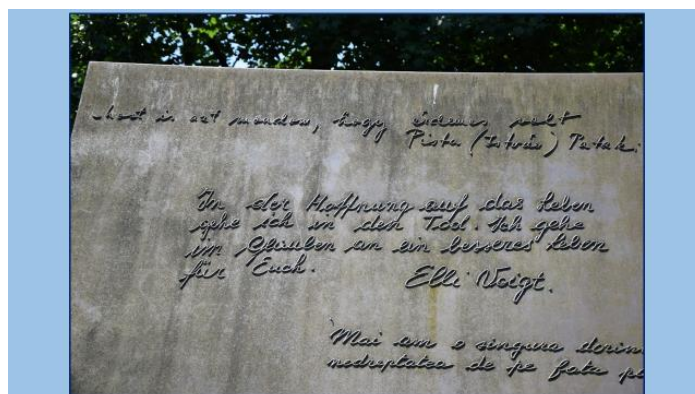 most is azt mondom, hogy érdemes volt
Pista (István) Pataki
In der Hoffnung auf das Leben
gehe ich in den Tod. Ich gehe
im Glauben an ein besseres Leben
für Euch.
Elli Voigt.
Mai am o singura dorin
nedreptatea de pe fata pa